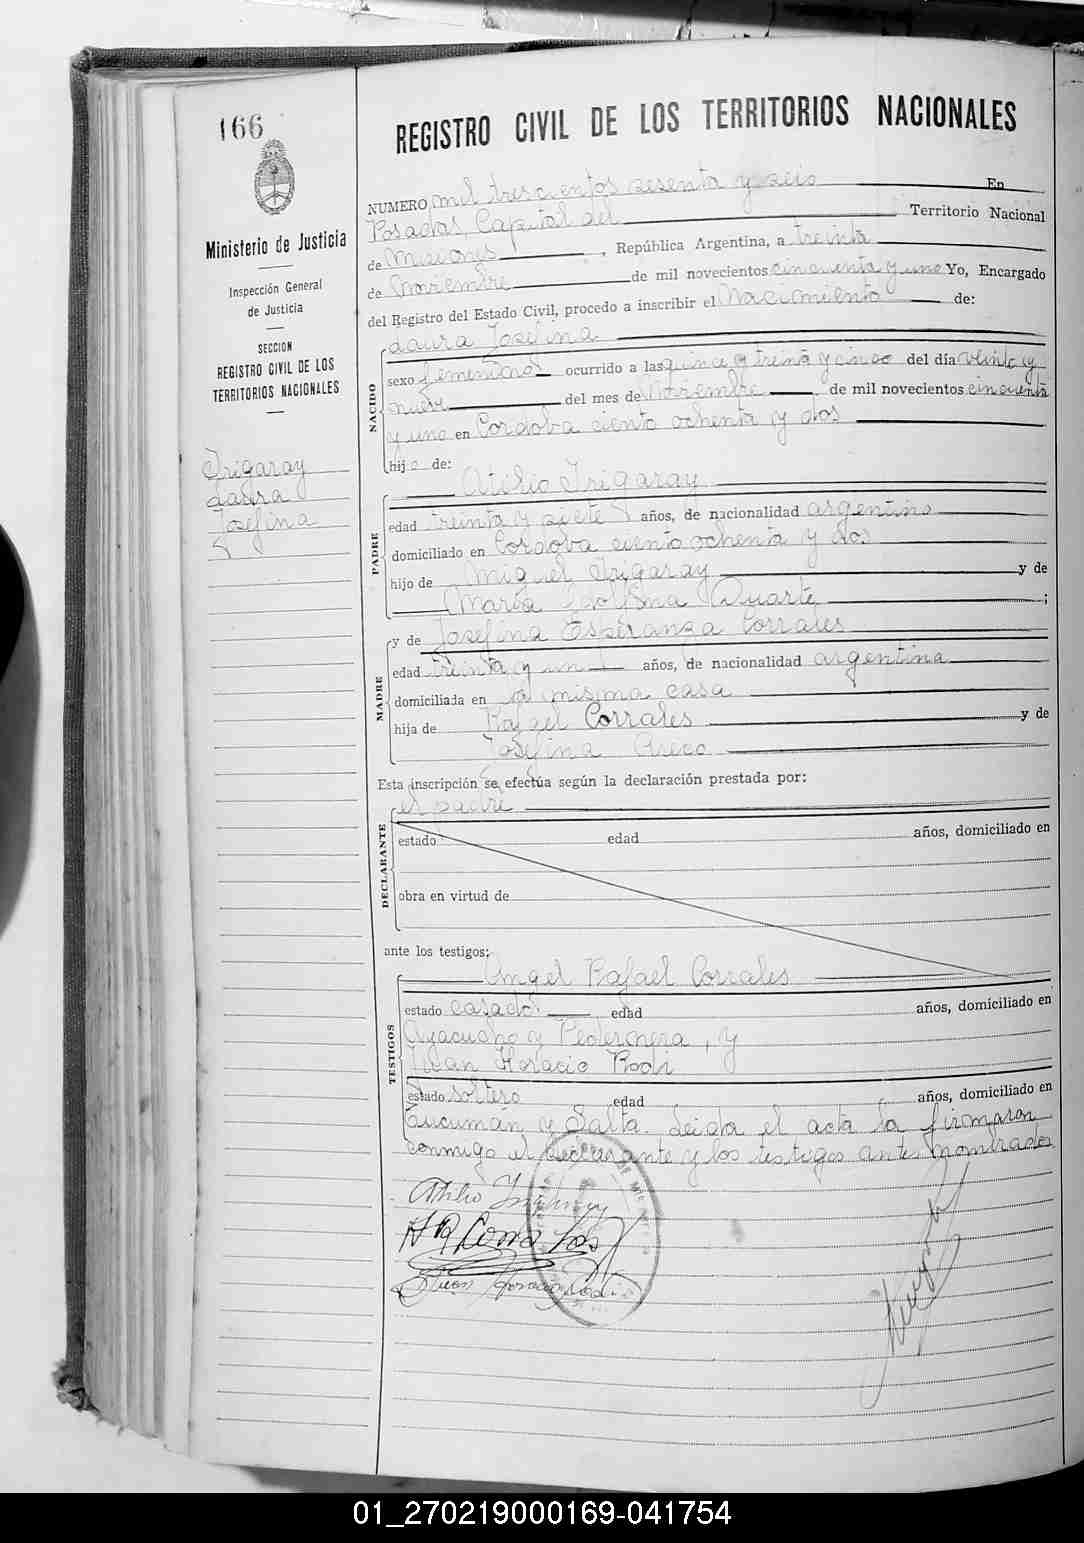 166
REGISTRO CIVIL DE LOS TERRITORIOS NACIONALES
Ministerio de Justicia
Inspección General
de Justicia
SECCION
REGISTRO CIVIL DE LOS
TERRITORIOS NACIONALES
Irigaray
Laura
Josefina
NUMERO mil trescientos sesenta y seis En
Posadas, Capital del Territorio Nacional
de Misiones, República Argentina, a treinta
de Noviembre de mil novecientos cincuenta y uno Yo, Encargado
del Registro del Estado Civil, procedo a inscribir el Nacimiento de:
Laura Josefina
NACIDO
sexo femenino ocurrido a las quince y treinta y cinco del día veinte y
nueve del mes de Noviembre de mil novecientos cincuenta
y uno en Cordoba ciento ochenta y dos
hija de:
Atilio Irigaray
PADRE
edad treinta y siete años, de nacionalidad argentino
domiciliado en Cordoba ciento ochenta y dos
hijo de Miguel Irigaray y de
María Duarte;
MADRE
y de Josefina Esperanza Corrales
edad treinta y un años, de nacionalidad argentina
domiciliada en la misma casa
hija de Rafael Corrales y de
Josefina Greco
Esta inscripción se efectúa según la declaración prestada por:
el padre
DECLARANTE
estado edad años, domiciliado en
obra en virtud de
ante los testigos:
Angel Rafael Corrales
TESTIGOS
estado casado edad años, domiciliado en
Ayacucho y Pedernera, y
Juan Horacio Rodi
estado soltero edad años, domiciliado en
Tucumán y Salta. Leida el acta la firmaron
conmigo el declarante y los testigos antes nombrados
Atilio Irigaray
A R Corrales
Juan Horacio Rodi
01_270219000169-041754